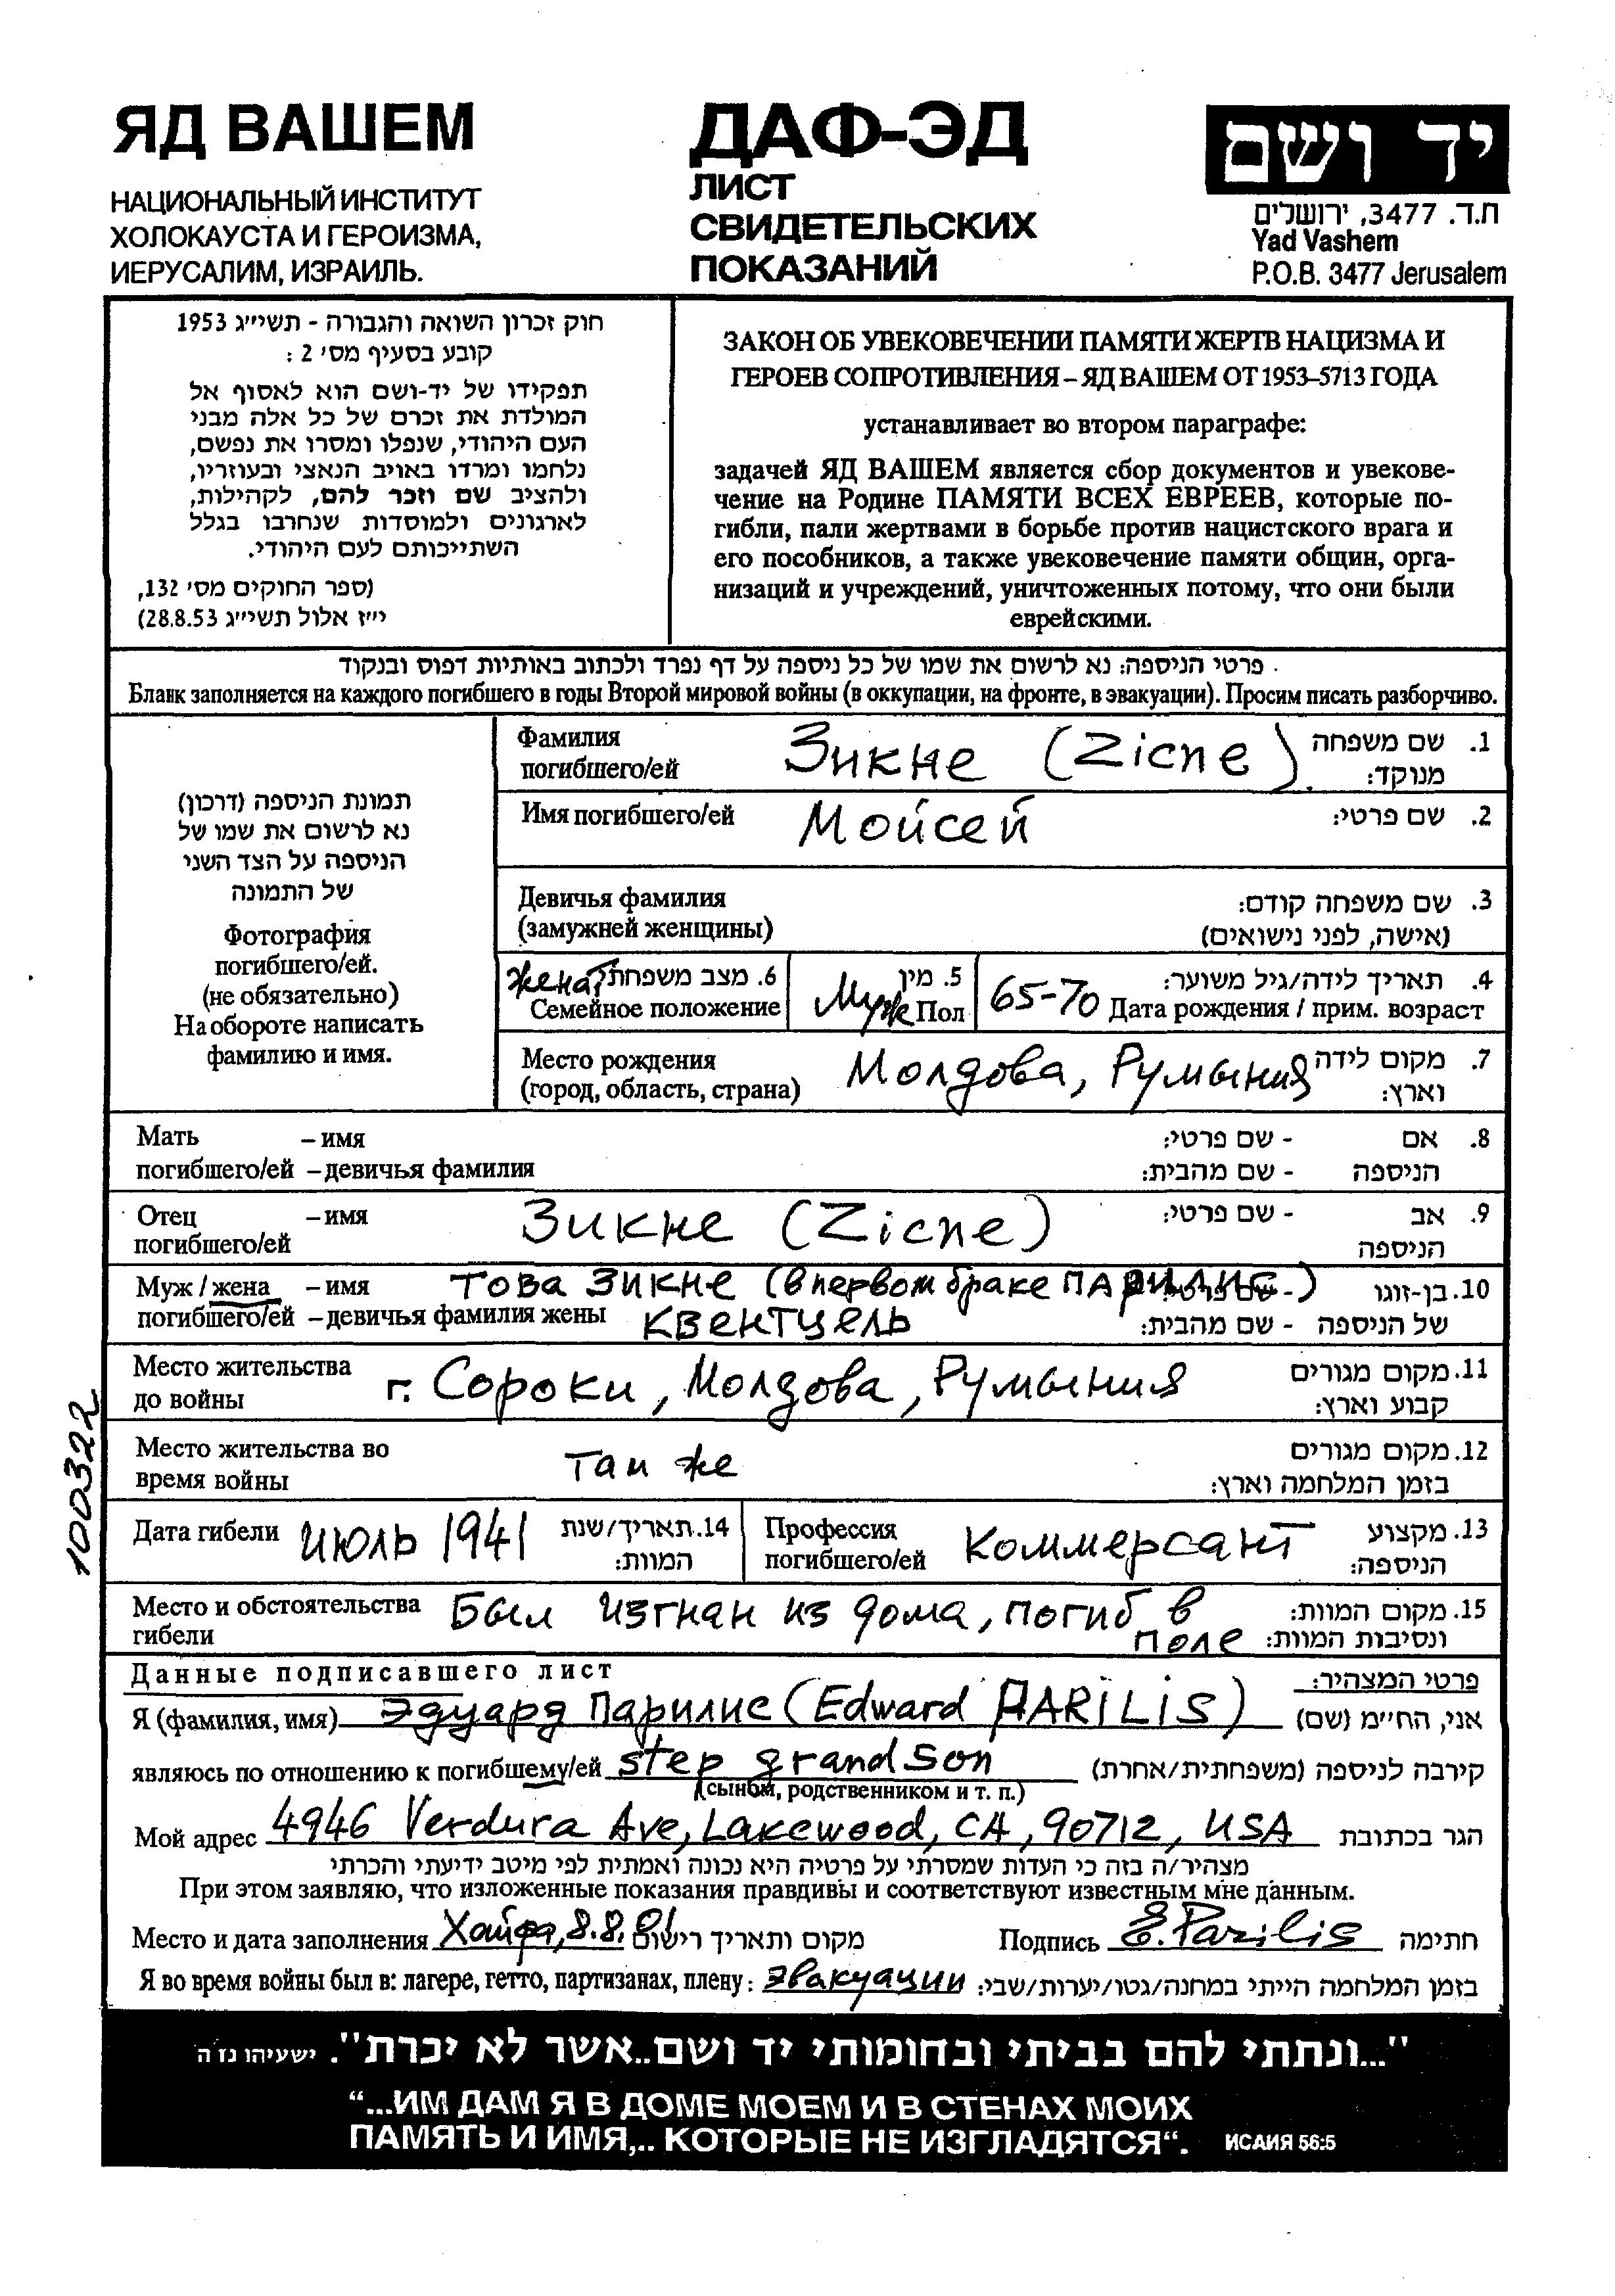 ЯД ВАШЕМ
НАЦИОНАЛЬНЫЙ ИНСТИТУТ
ХОЛОКАУСТА И ГЕРОИЗМА,
ИЕРУСАЛИМ, ИЗРАИЛЬ.
ДАФ-ЭД
ЛИСТ
СВИДЕТЕЛЬСКИХ
ПОКАЗАНИЙ
יד ושם
ת.ד. 3477, ירושלים
Yad Vashem
P.O.B. 3477 Jerusalem
חוק זכרון השואה והגבורה - תשי״ג 1953
קובע בסעיף מס׳ 2 :
תפקידו של יד-ושם הוא לאסוף אל
המולדת את זכרם של כל אלה מבני
העם היהודי, שנפלו ומסרו את נפשם,
נלחמו ומרדו באויב הנאצי ובעוזריו,
ולהציב שם וזכר להם, לקהילות,
לארגונים ולמוסדות שנחרבו בגלל
השתייכותם לעם היהודי.
(ספר החוקים מס׳ 132,
י״ז אלול תשי״ג 28.8.53)
ЗАКОН ОБ УВЕКОВЕЧЕНИИ ПАМЯТИ ЖЕРТВ НАЦИЗМА И
ГЕРОЕВ СОПРОТИВЛЕНИЯ – ЯД ВАШЕМ ОТ 1953–5713 ГОДА
устанавливает во втором параграфе:
задачей ЯД ВАШЕМ является сбор документов и увекове-
чение на Родине ПАМЯТИ ВСЕХ ЕВРЕЕВ, которые по-
гибли, пали жертвами в борьбе против нацистского врага и
его пособников, а также увековечение памяти общин, орга-
низаций и учреждений, уничтоженных потому, что они были
еврейскими.
פרטי הניספה: נא לרשום את שמו של כל ניספה על דף נפרד ולכתוב באותיות דפוס ובנקוד
Бланк заполняется на каждого погибшего в годы Второй мировой войны (в оккупации, на фронте, в эвакуации). Просим писать разборчиво.
תמונת הניספה (דרכון)
נא לרשום את שמו של
הניספה על הצד השני
של התמונה
Фотография
погибшего/ей.
(не обязательно)
На обороте написать
фамилию и имя.
Фамилия Зикне (Zicne) 1. שם משפחה
погибшего/ей מנוקד:
Имя погибшего/ей Мойсей 2. שם פרטי:
Девичья фамилия 3. שם משפחה קודם:
(замужней женщины) (אישה, לפני נישואים)
женат 6. מצב משפחתי 5. מין 4. תאריך לידה/גיל משוער:
Семейное положение Муж Пол 65-70 Дата рождения / прим. возраст
Место рождения Молдова, Румыния 7. מקום לידה
(город, область, страна) וארץ:
Мать – имя 8. אם - שם פרטי:
погибшего/ей – девичья фамилия הניספה - שם מהבית:
Отец – имя Зикне (Zicne) 9. אב - שם פרטי:
погибшего/ей הניספה
Муж / жена – имя Това Зикне (в первом браке ПАРИЛИС) 10. בן-זוגו - שם פרטי:
погибшего/ей – девичья фамилия жены КВЕНТЦЕЛЬ של הניספה - שם מהבית:
Место жительства г. Сороки, Молдова, Румыния 11. מקום מגורים
до войны קבוע וארץ:
Место жительства во там же 12. מקום מגורים
время войны בזמן המלхמה וארץ:
Дата гибели июль 1941 14. תאריך/שנת המוות:
Профессия погибшего/ей коммерсант 13. מקצוע הניספה:
Место и обстоятельства Был изгнан из дома, погиб в 15. מקום המוות:
гибели поле ונסיבות המוות:
Данные подписавшего лист פרטי המצהיר:
Я (фамилия, имя) Эдуард Парилис (Edward PARILIS) אני, הח״מ (שם)
являюсь по отношению к погибшему/ей step grandson קירבה לניספה (משפחתית/אחרת)
(сыном, родственником и т. п.)
Мой адрес 4946 Verdura Ave, Lakewood, CA, 90712, USA הגר בכתובת
מצהיר/ה בזה כי העדות שמסרתי על פרטיה היא נכונה ואמתית לפי מיטב ידיעתי והכרתי
При этом заявляю, что изложенные показания правдивы и соответствуют известным мне данным.
Место и дата заполнения Хайфа, 8.8.01 מקום ותאריך רישום Подпись E. Parilis חתימה
Я во время войны был в: лагере, гетто, партизанах, плену: эвакуации בזמן המלחמה הייתי במחנה/גטו/יערות/שבי:
"...ונתתי להם בביתי ובחומותי יד ושם..אשר לא יכרת". ישעיהו נז׳ה
“...ИМ ДАМ Я В ДОМЕ МОЕМ И В СТЕНАХ МОИХ
ПАМЯТЬ И ИМЯ,.. КОТОРЫЕ НЕ ИЗГЛАДЯТСЯ“. ИСАИЯ 56:5
100322